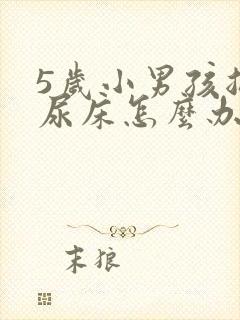 5歲小男孩挑
尿床怎麼办
末狼